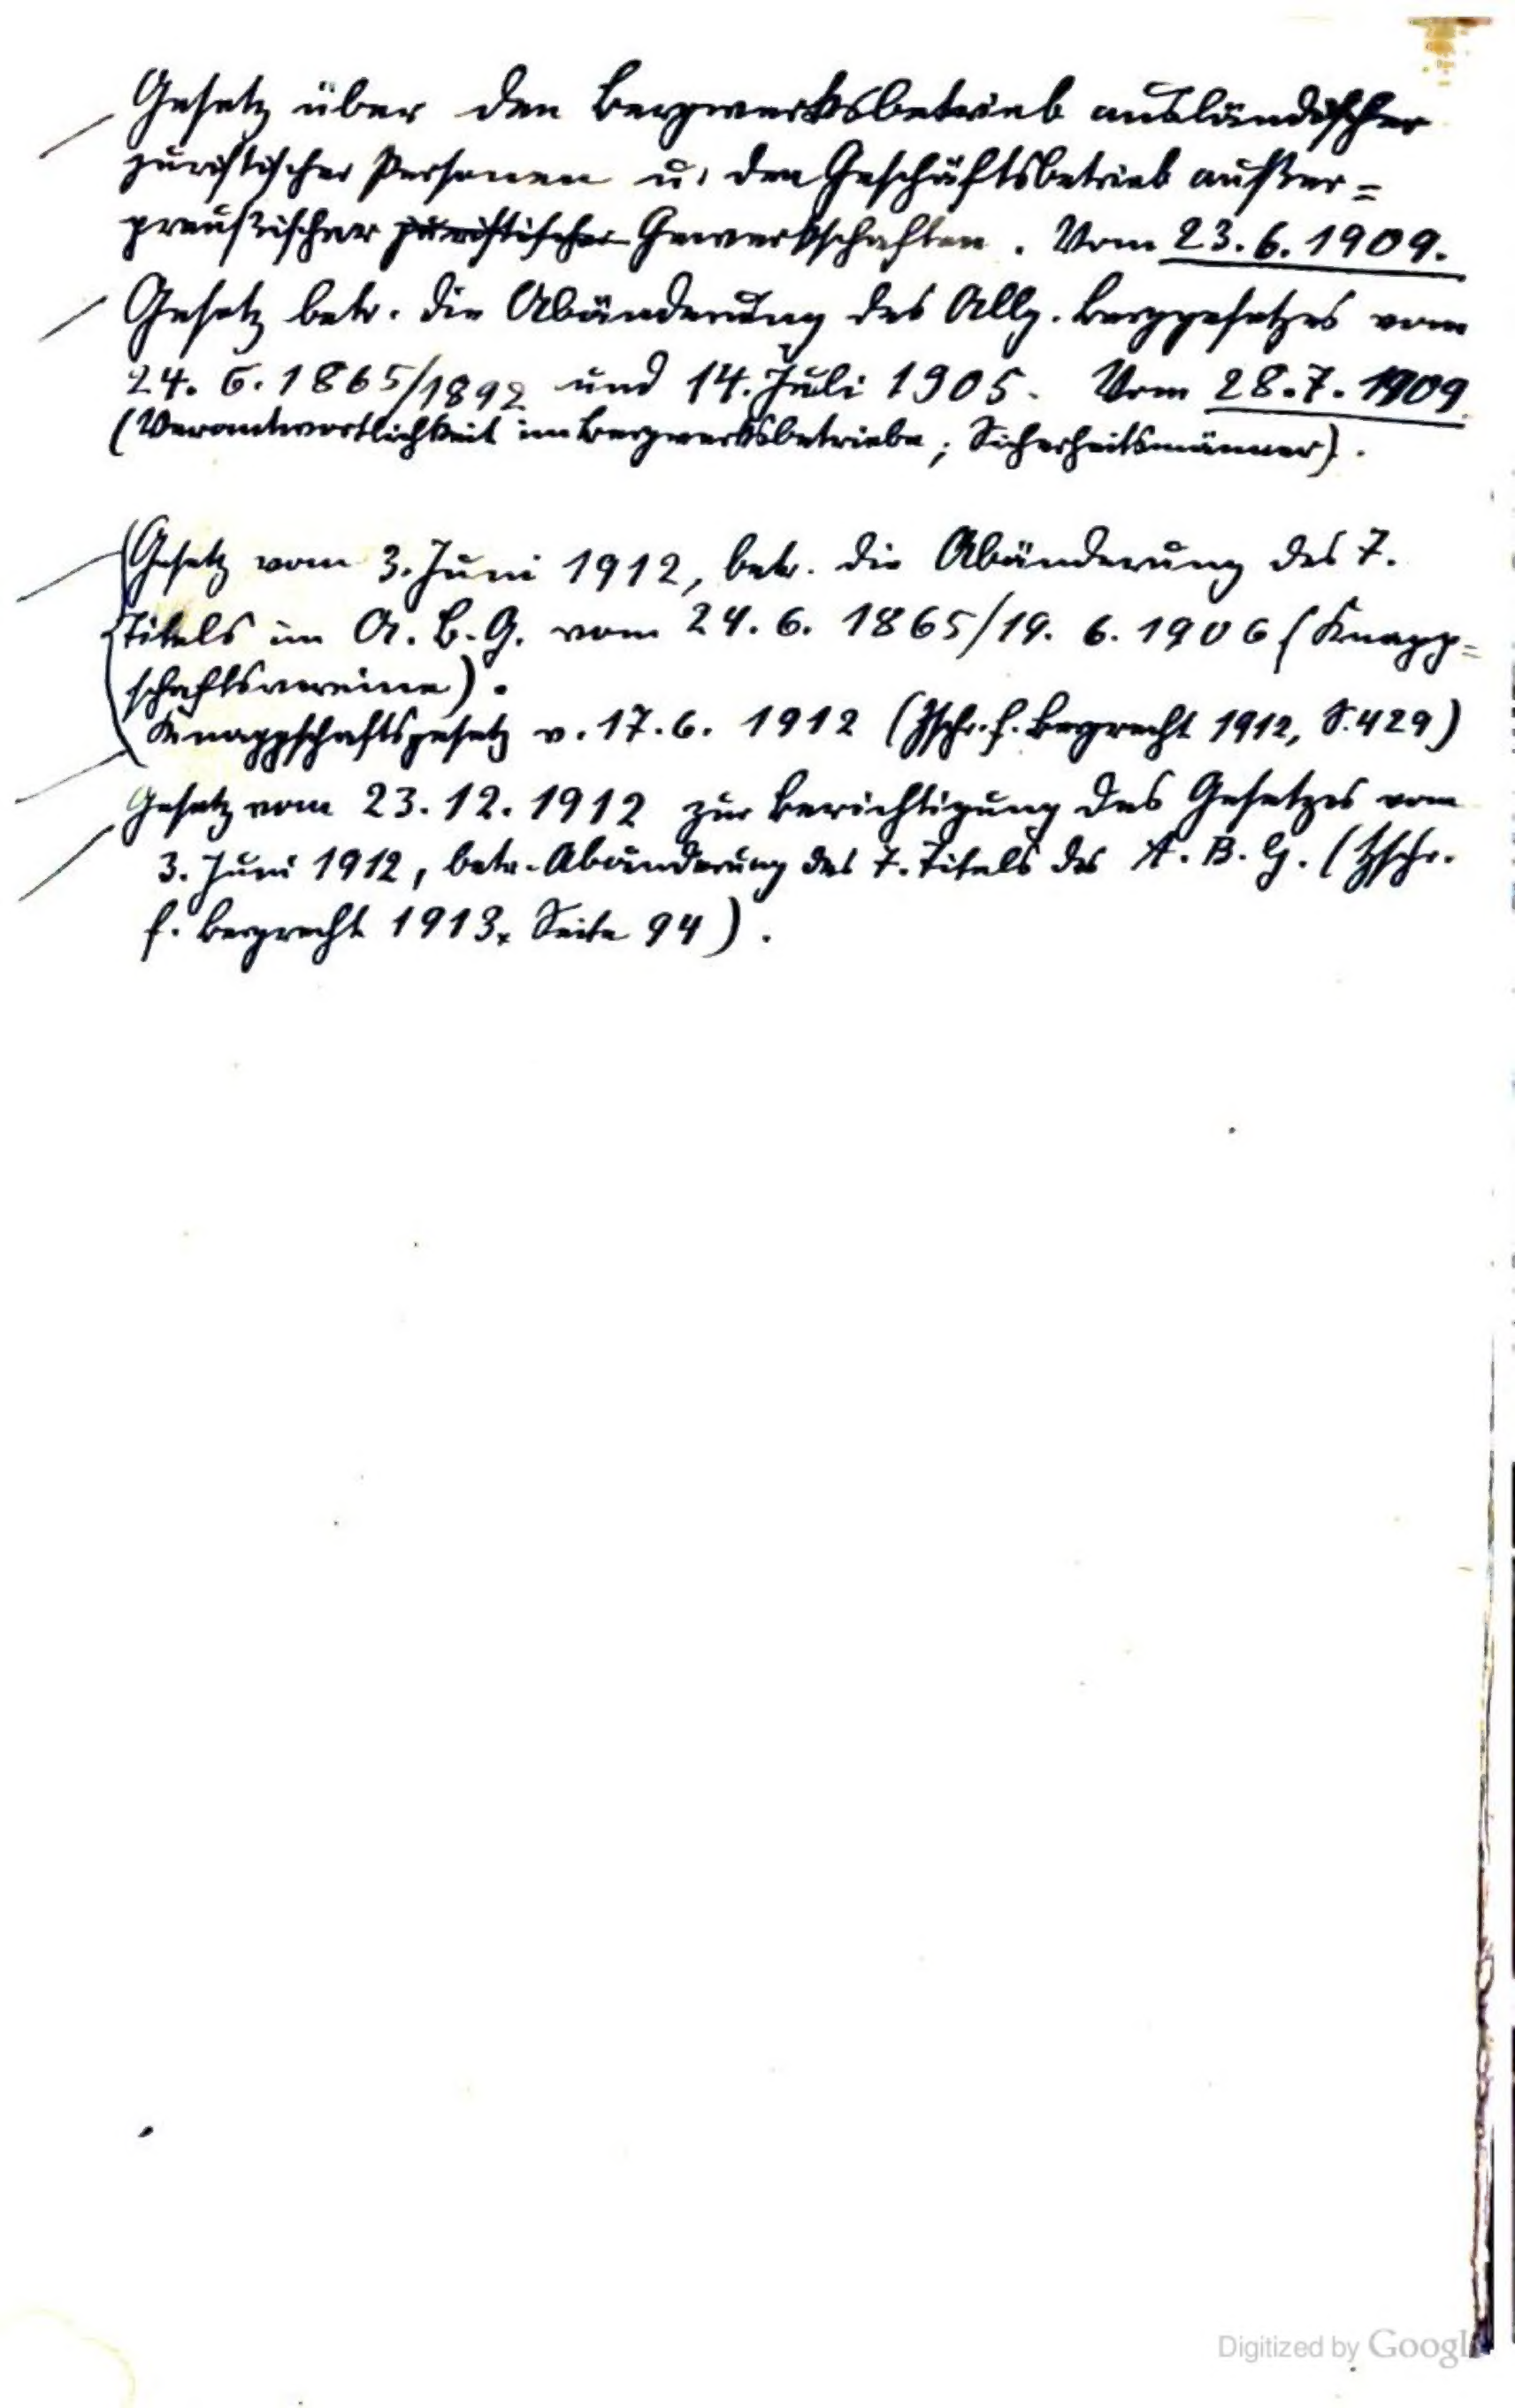 Gesetz über den Bergwerksbetrieb ausländischer
juristischer Personen u. den Geschäftsbetrieb außer=
preußischer juristischer Gewerkschaften. Vom 23.6.1909.
Gesetz betr. die Abänderung des Allg. Berggesetzes vom
24. 6. 1865/1892 und 14. Juli 1905. Vom 28.7.1909
(Verantwortlichkeit im Bergwerksbetriebe; Sicherheitsmänner).
Gesetz vom 3. Juni 1912, betr. die Abänderung des 7.
Titels im A. B. G. vom 24. 6. 1865/19. 6. 1906 (Knapp=
schaftsvereine).
Knappschaftsgesetz v. 17. 6. 1912 (Zschr. f. Bergrecht 1912, S. 429)
Gesetz vom 23. 12. 1912 zur Berichtigung des Gesetzes vom
3. Juni 1912, betr. Abänderung des 7. Titels des A. B. G. (Zschr.
f. Bergrecht 1913, Seite 94).
Digitized by Google